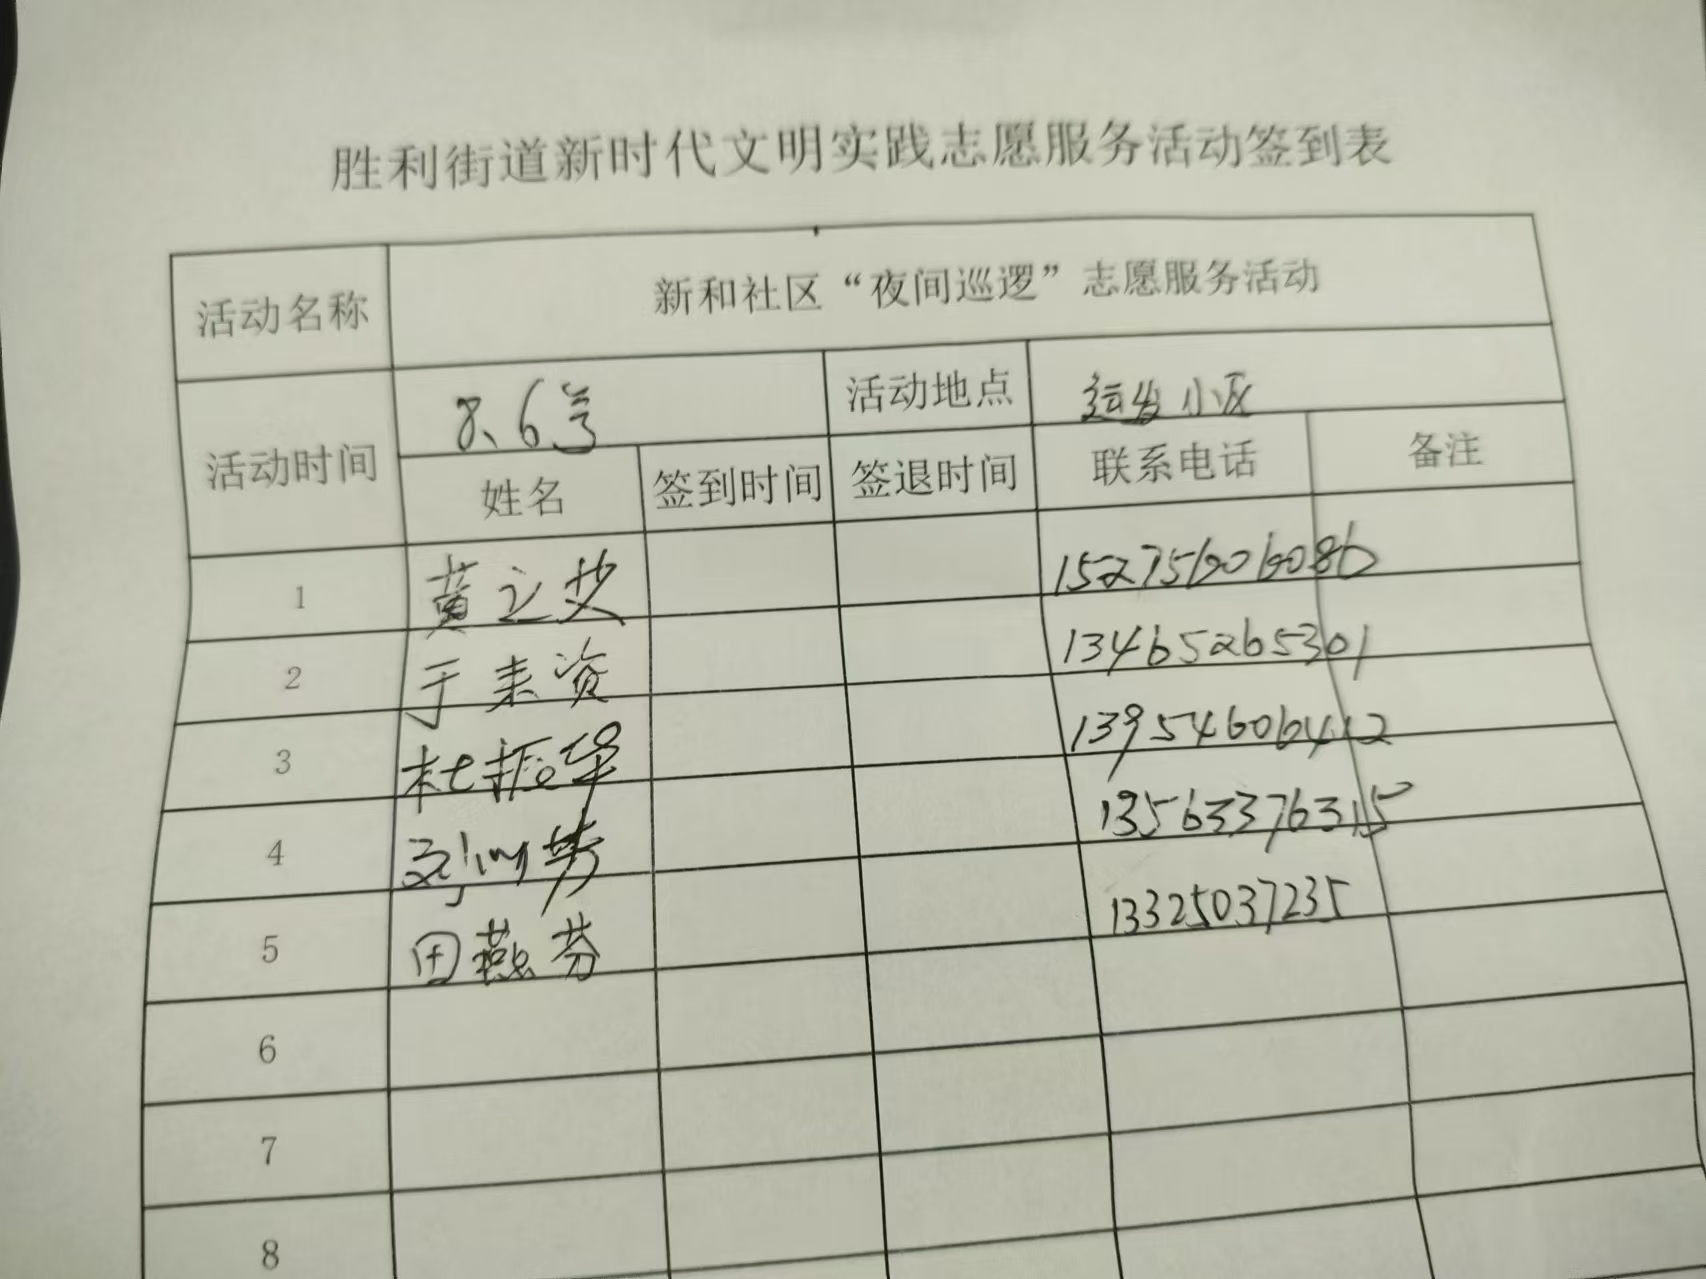 胜利街道新时代文明实践志愿服务活动签到表
活动名称 新和社区“夜间巡逻”志愿服务活动
活动时间 8、6号 活动地点 运发小区
姓名 签到时间 签退时间 联系电话 备注
1 黄立艾
2 于来资 13465265301
3 杜振华 13954606412
4 13563376315
5 田燕芬 13325037235
6
7
8